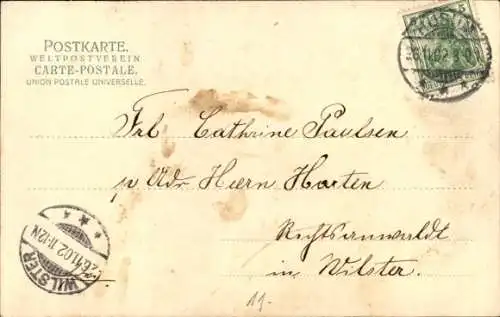 POSTKARTE.
WELTPOSTVEREIN
CARTE-POSTALE.
UNION POSTALE UNIVERSELLE.
5
26.11.02
Frl Cathrine Paulsen
p Adr Herrn Harten
Rechtsanwaldt
in Wilster.
26.11.02 11-12N
WILSTER